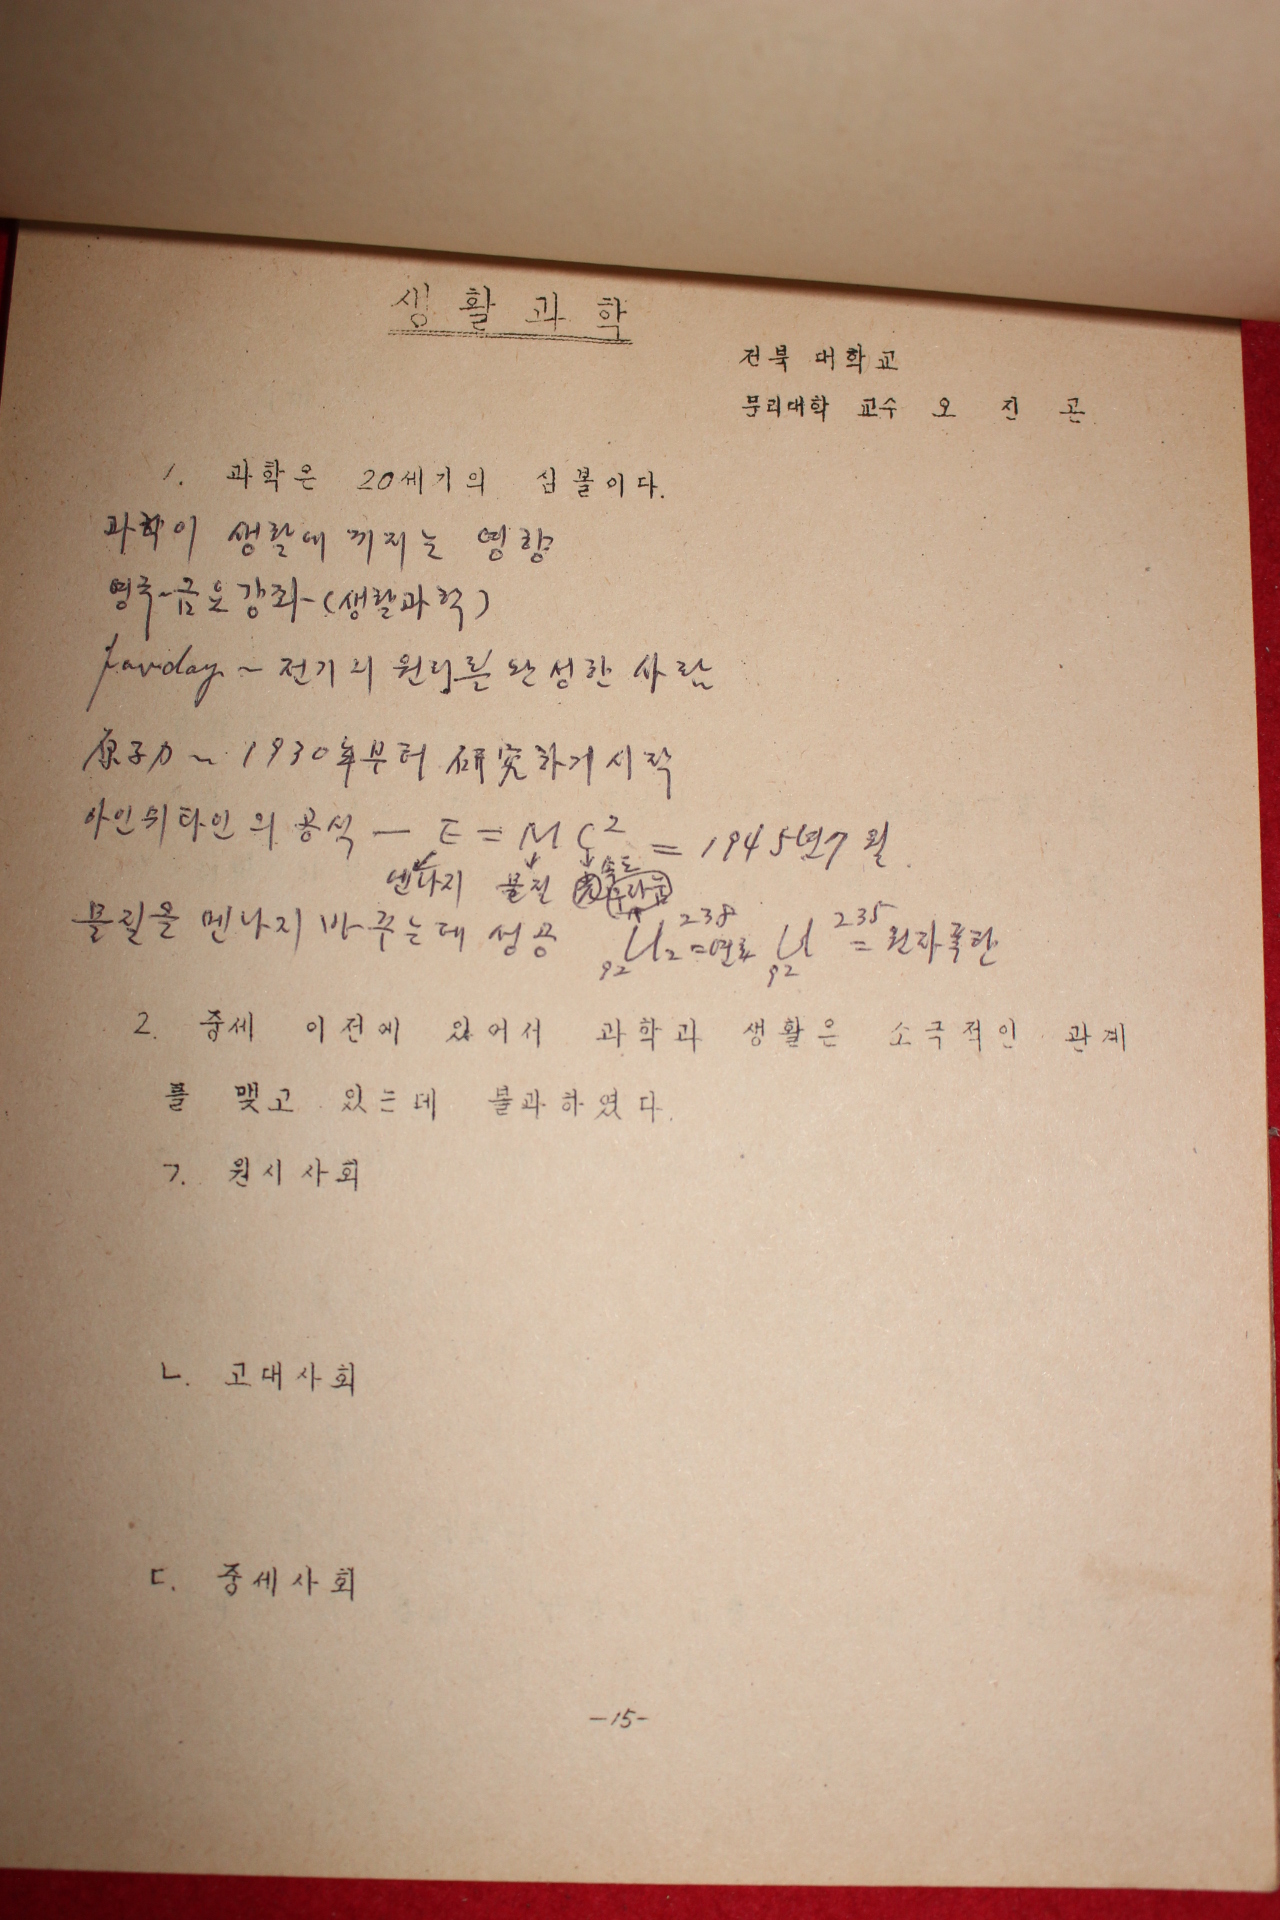 생활과학
전북 대학교
문리대학 교수 오 진 곤
1. 과학은 20세기의 심볼이다.
과학이 생활에 끼치는 영향
영국~금요강좌~(생활과학)
~ 전기의 원리를 완성한 사람
原子力 ~ 1930年부터 硏究하기 시작
아인쉬타인의 공식 — E = M C² = 1945년 7월
엔나지 물질 光 속도
우라늄
물질을 엔나지 바꾸는데 성공 ₉₂U₂²³⁸ =연료 ₉₂U²³⁵ = 원자폭탄
2. 중세 이전에 있어서 과학과 생활은 소극적인 관계
를 맺고 있는데 불과하였다.
ㄱ. 원시사회
ㄴ. 고대사회
ㄷ. 중세사회
-15-